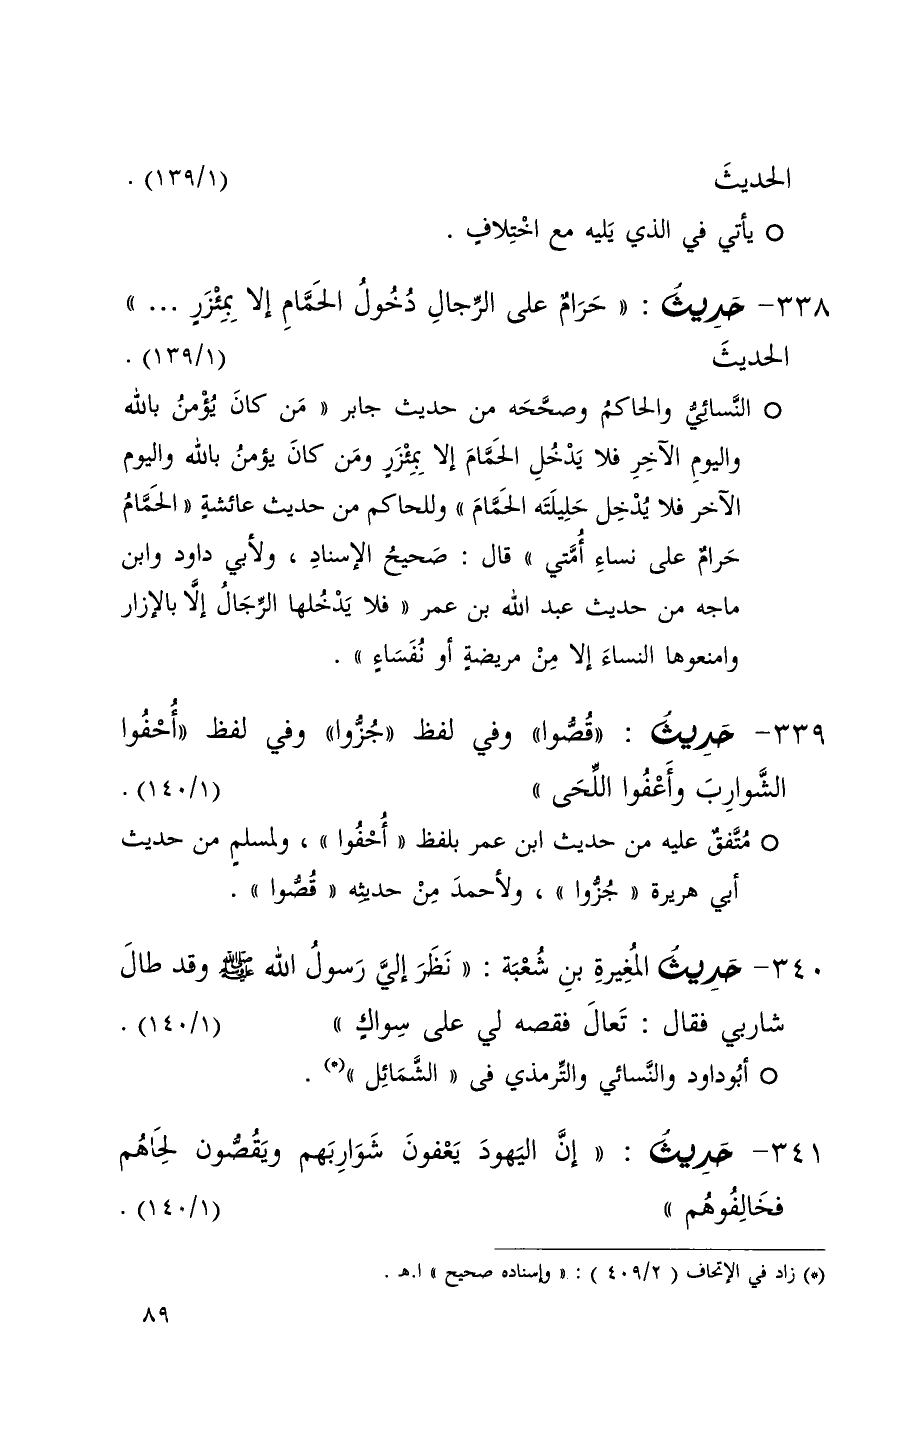 الحديثَ (١٣٩/١) .
○ يأتي في الذي يَليه مع اخْتِلافٍ .
٣٣٨- حَدِيثُ : « حَرَامٌ على الرِّجالِ دُخُولُ الحَمَّامِ إلا بِمِئْزَرٍ ... »
الحديثَ (١٣٩/١) .
○ النَّسائِيُّ والحاكمُ وصحَّحَه من حديث جابر « مَن كانَ يُؤْمنُ بالله
واليومِ الآخِرِ فلا يَدْخُلِ الحَمَّامَ إلا بِمِئْزَرٍ ومَن كانَ يؤمنُ بالله واليوم
الآخر فلا يُدْخِل حَلِيلَتَه الحَمَّامَ » وللحاكم من حديث عائشةٍ « الحَمَّامُ
حَرامٌ على نساءِ أُمَّتي » قال : صَحيحُ الإسنادِ ، ولأبي داود وابن
ماجه من حديث عبد الله بن عمر « فلا يَدْخُلها الرِّجَالُ إلَّا بالإزار
وامنعوها النساءَ إلا مِنْ مريضةٍ أو نُفَسَاءٍ » .
٣٣٩- حَدِيثُ : «قُصُّوا» وفي لفظ «جُزُّوا» وفي لفظ «أُحْفُوا
الشَّوارِبَ وأَعْفُوا اللِّحَى » (١٤٠/١) .
○ مُتَّفقٌ عليه من حديث ابن عمر بلفظ « أُحْفُوا » ، ولمسلمٍ من حديث
أبي هريرة « جُزُّوا » ، ولأحمدَ مِنْ حديثِه « قُصُّوا » .
٣٤٠- حَدِيثُ المُغِيرةِ بنِ شُعْبَة : « نَظَرَ إليَّ رَسولُ الله ﷺ وقد طالَ
شاربي فقال : تَعالَ فقصه لي على سِواكٍ » (١٤٠/١) .
○ أبُوداود والنَّسائي والتِّرمذي فى « الشَّمَائِل »(*) .
٣٤١- حَدِيثُ : « إنَّ اليَهودَ يَعْفونَ شَوَارِبَهم ويَقُصُّون لِحَاهُم
فخَالِفُوهُم » (١٤٠/١) .
(*) زاد في الإتحاف ( ٤٠٩/٢ ) : « وإسناده صحيح » ا.هـ .
٨٩